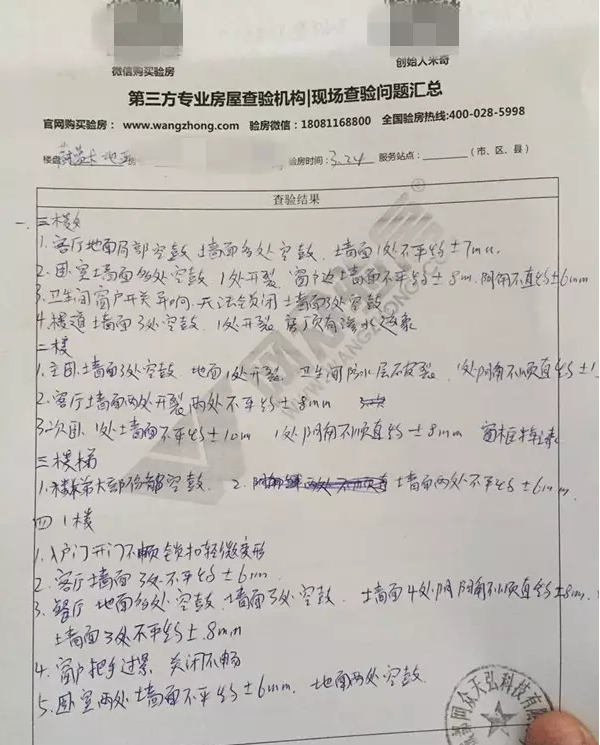 微信购买验房
创始人米奇
第三方专业房屋查验机构|现场查验问题汇总
官网购买验房：www.wangzhong.com 验房微信：18081168800 全国验房热线:400-028-5998
楼盘 蔚蓝卡地亚 验房时间：3.24 服务站点： （市、区、县）
查验结果
一.三楼
1.客厅地面局部空鼓 土墙面多处空鼓. 土墙面1处不平约±7mm.
2.卧室土墙面多处空鼓 1处开裂 窗户边土墙面不平约±8mm.阴角不直约±6mm
3.卫生间窗户开关异响.无法锁闭 土墙面3处空鼓
4.楼道土墙面3处空鼓、1处开裂 房顶有渗水迹象
二楼
1.主卧.土墙面3处空鼓 地面1处开裂. 卫生间防水层石皮裂. 1处阴角不顺直约±1
2.客厅土墙面两处开裂 两处不平约±8mm
3.次卧.1处土墙面不平约±10mm 1处阴角不顺直约±8mm 窗框
三楼梯
1.楼梯大部份空鼓. 2. 土墙面两处不平约±6mm.
四 1楼
1.入户门开门不顺 锁扣轻微变形
2.客厅土墙面3处不平约±6mm
3.餐厅 地面多处空鼓.土墙面3处空鼓. 土墙面4处阴阳角不顺直约±8mm.
土墙面3处不平约±8mm
4.窗户把手过紧 关闭不畅
5.卧室两处土墙面不平约±6mm. 地面两处空鼓.
网众天弘科技有限
网众
WANGZHONG.COM